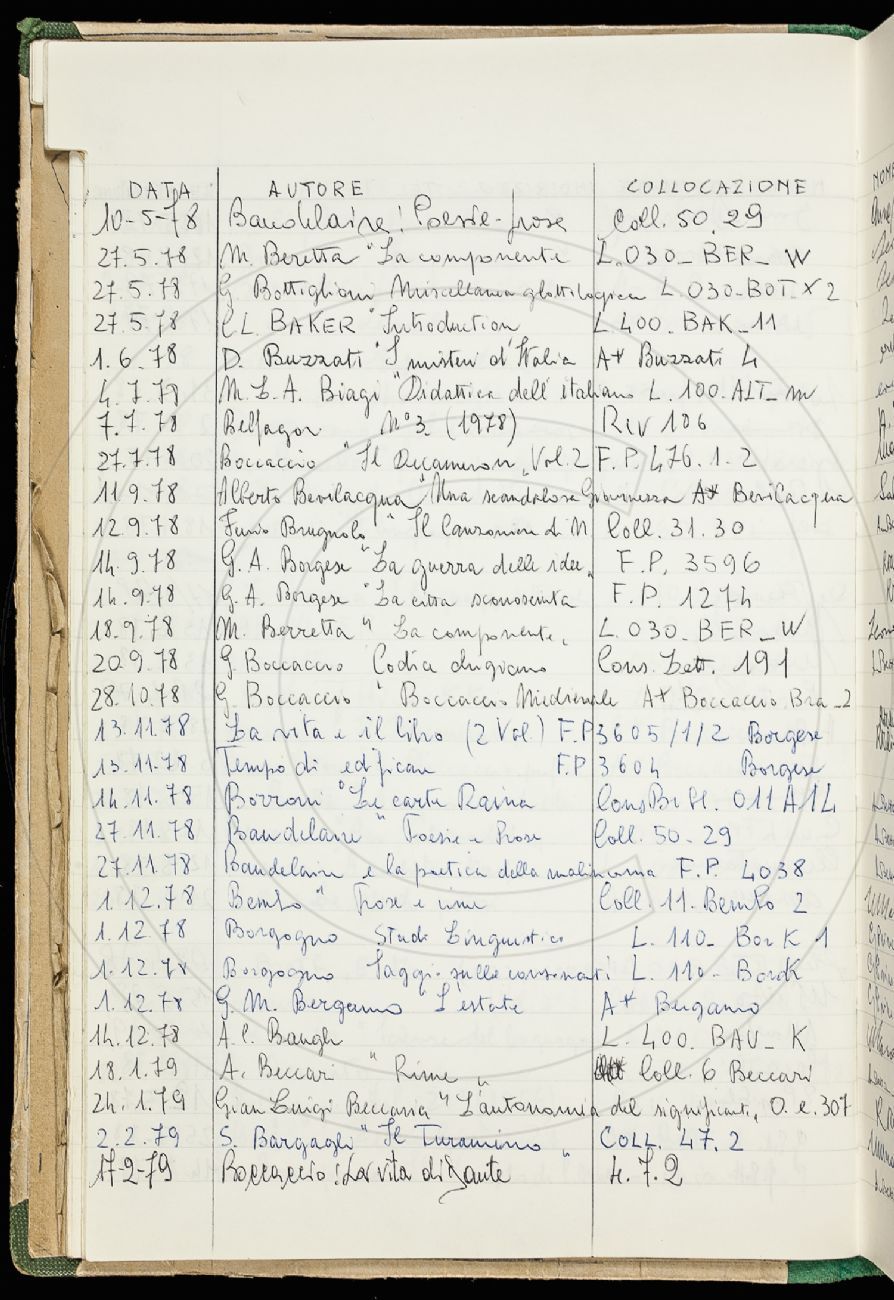 DATA AUTORE COLLOCAZIONE
10-5-78 Baudelaire: Poesie-prose Coll. 50.29
27.5.78 M. Beretta "La componente L.030_BER_W
27.5.78 G Bottiglioni Miscellanea glottologica L.030-BOT_X2
27.5.78 CL BAKER "Introduction L400.BAK_11
1.6.78 D. Buzzati "I misteri d'Italia A* Buzzati 4
4.7.78 M.L.A. Biagi "Didattica dell'italiano L.100.ALT_m
7.7.78 Belfagor N°3. (1978) Riv 106
27.7.78 Boccaccio "Il Decameron" Vol.2 F.P.476.1-2
11.9.78 Alberto Bevilacqua "Una scandalosa Giovinezza A* Bevilacqua
12.9.78 Furio Brugnolo "Il Canzoniere di N Coll. 31.30
14.9.78 G.A. Borgese "La guerra delle idee" F.P. 3596
14.9.78 G.A. Borgese "La città sconosciuta F.P. 1274
18.9.78 M. Berretta " La componente" L.030_BER_W
20.9.78 G Boccaccio Cons. Lett. 191
28.10.78 G. Boccaccio " Boccaccio Medievale A* Boccaccio Bra_2
13.11.78 La vita e il libro (2 Vol.) F.P 3605/1/2 Borgese
13.11.78 Tempo di edificare F.P 3604 Borgese
14.11.78 Borroni "Le carte Raina Cons Bibl. 011 A14
27.11.78 Baudelaire " Poesie e Prose Coll. 50-29
27.11.78 Baudelaire e la poetica della malinconia F.P. 4038
1.12.78 Bembo " Prose e rime Coll. 11. Bembo 2
1.12.78 Borgogno Studi Linguistici L. 110_ Bor K 1
1.12.78 Borgogno Saggi sulle consonanti L. 110_ BorK
1.12.78 G. M. Bergamo "L'estate A* Bergamo
14.12.78 A.C. Baugh L.400.BAU_K
18.1.79 A. Beccari " Rime " Coll. 6 Beccari
24.1.79 Gian Luigi Beccaria "L'autonomia del significante" O.e.307
2.2.79 S. Bargagli "Il Turamino " COLL. 47.2
17-2-79 Boccaccio: La vita di Dante 4.7.2